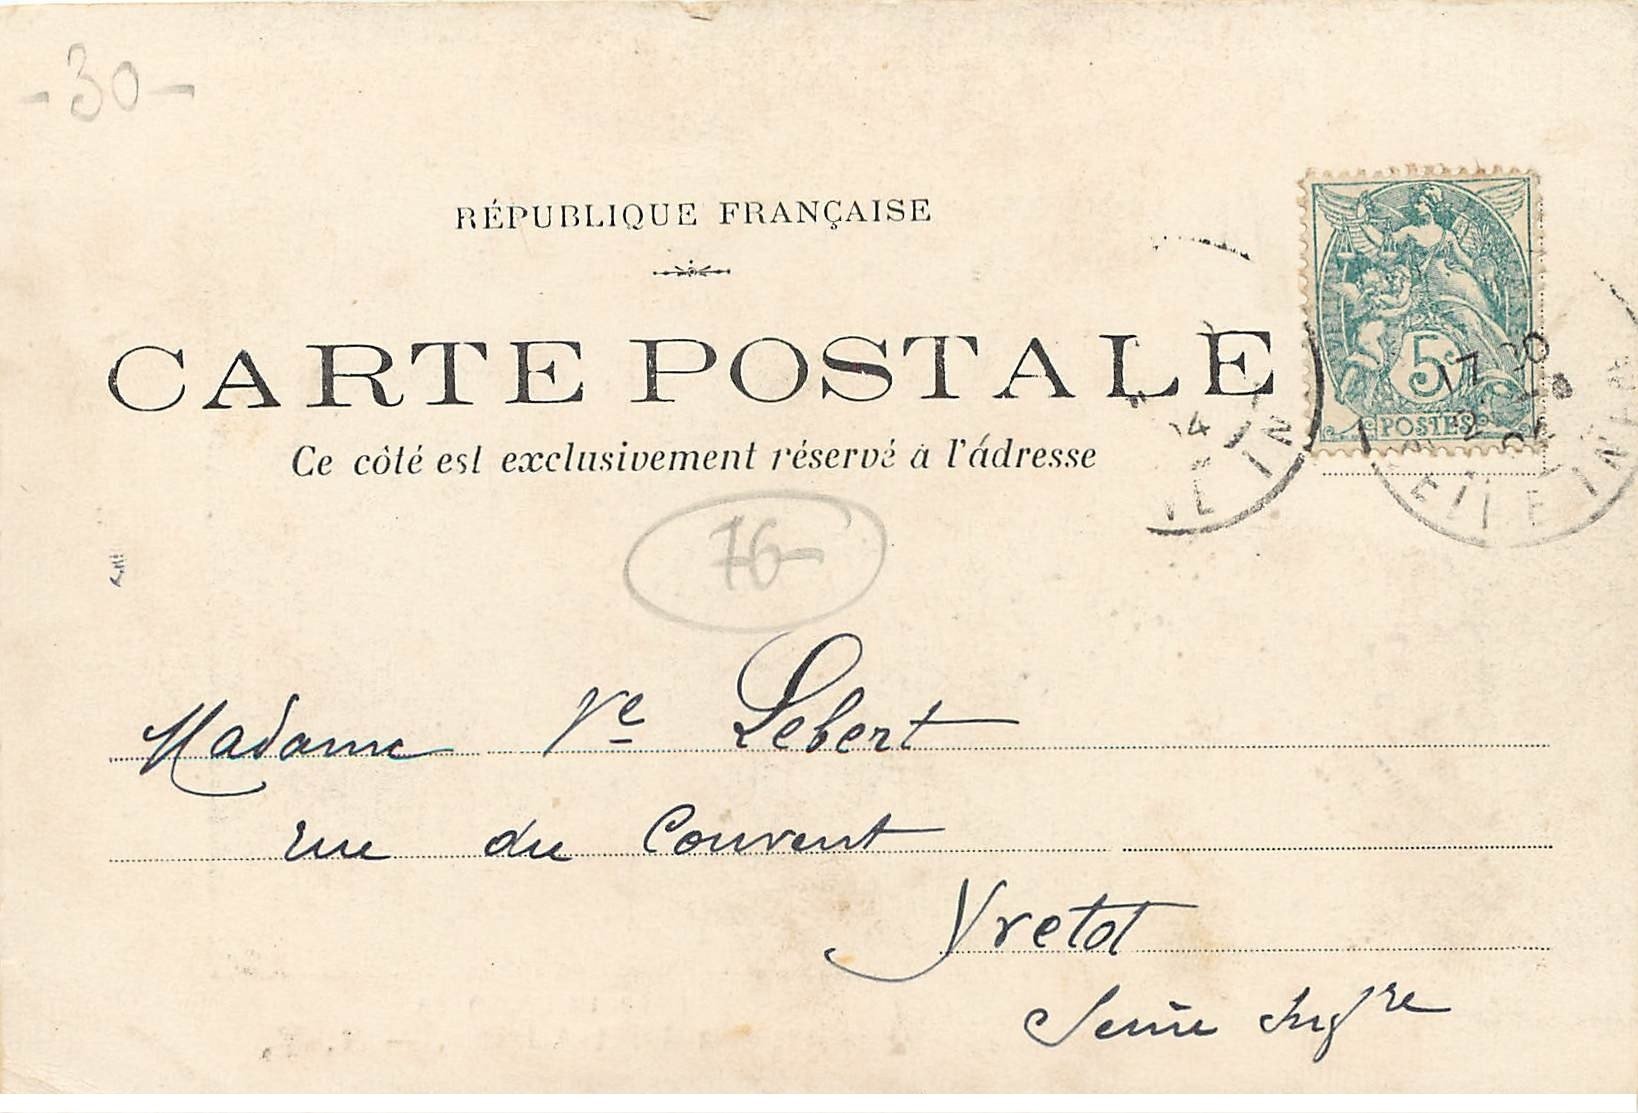 -30-
RÉPUBLIQUE FRANÇAISE
CARTE POSTALE
Ce côté est exclusivement réservé à l'adresse
5c
POSTES
76-
Madame Vᵉ Lebert
rue du Couvent
Yvetot
Seine Infʳᵉ